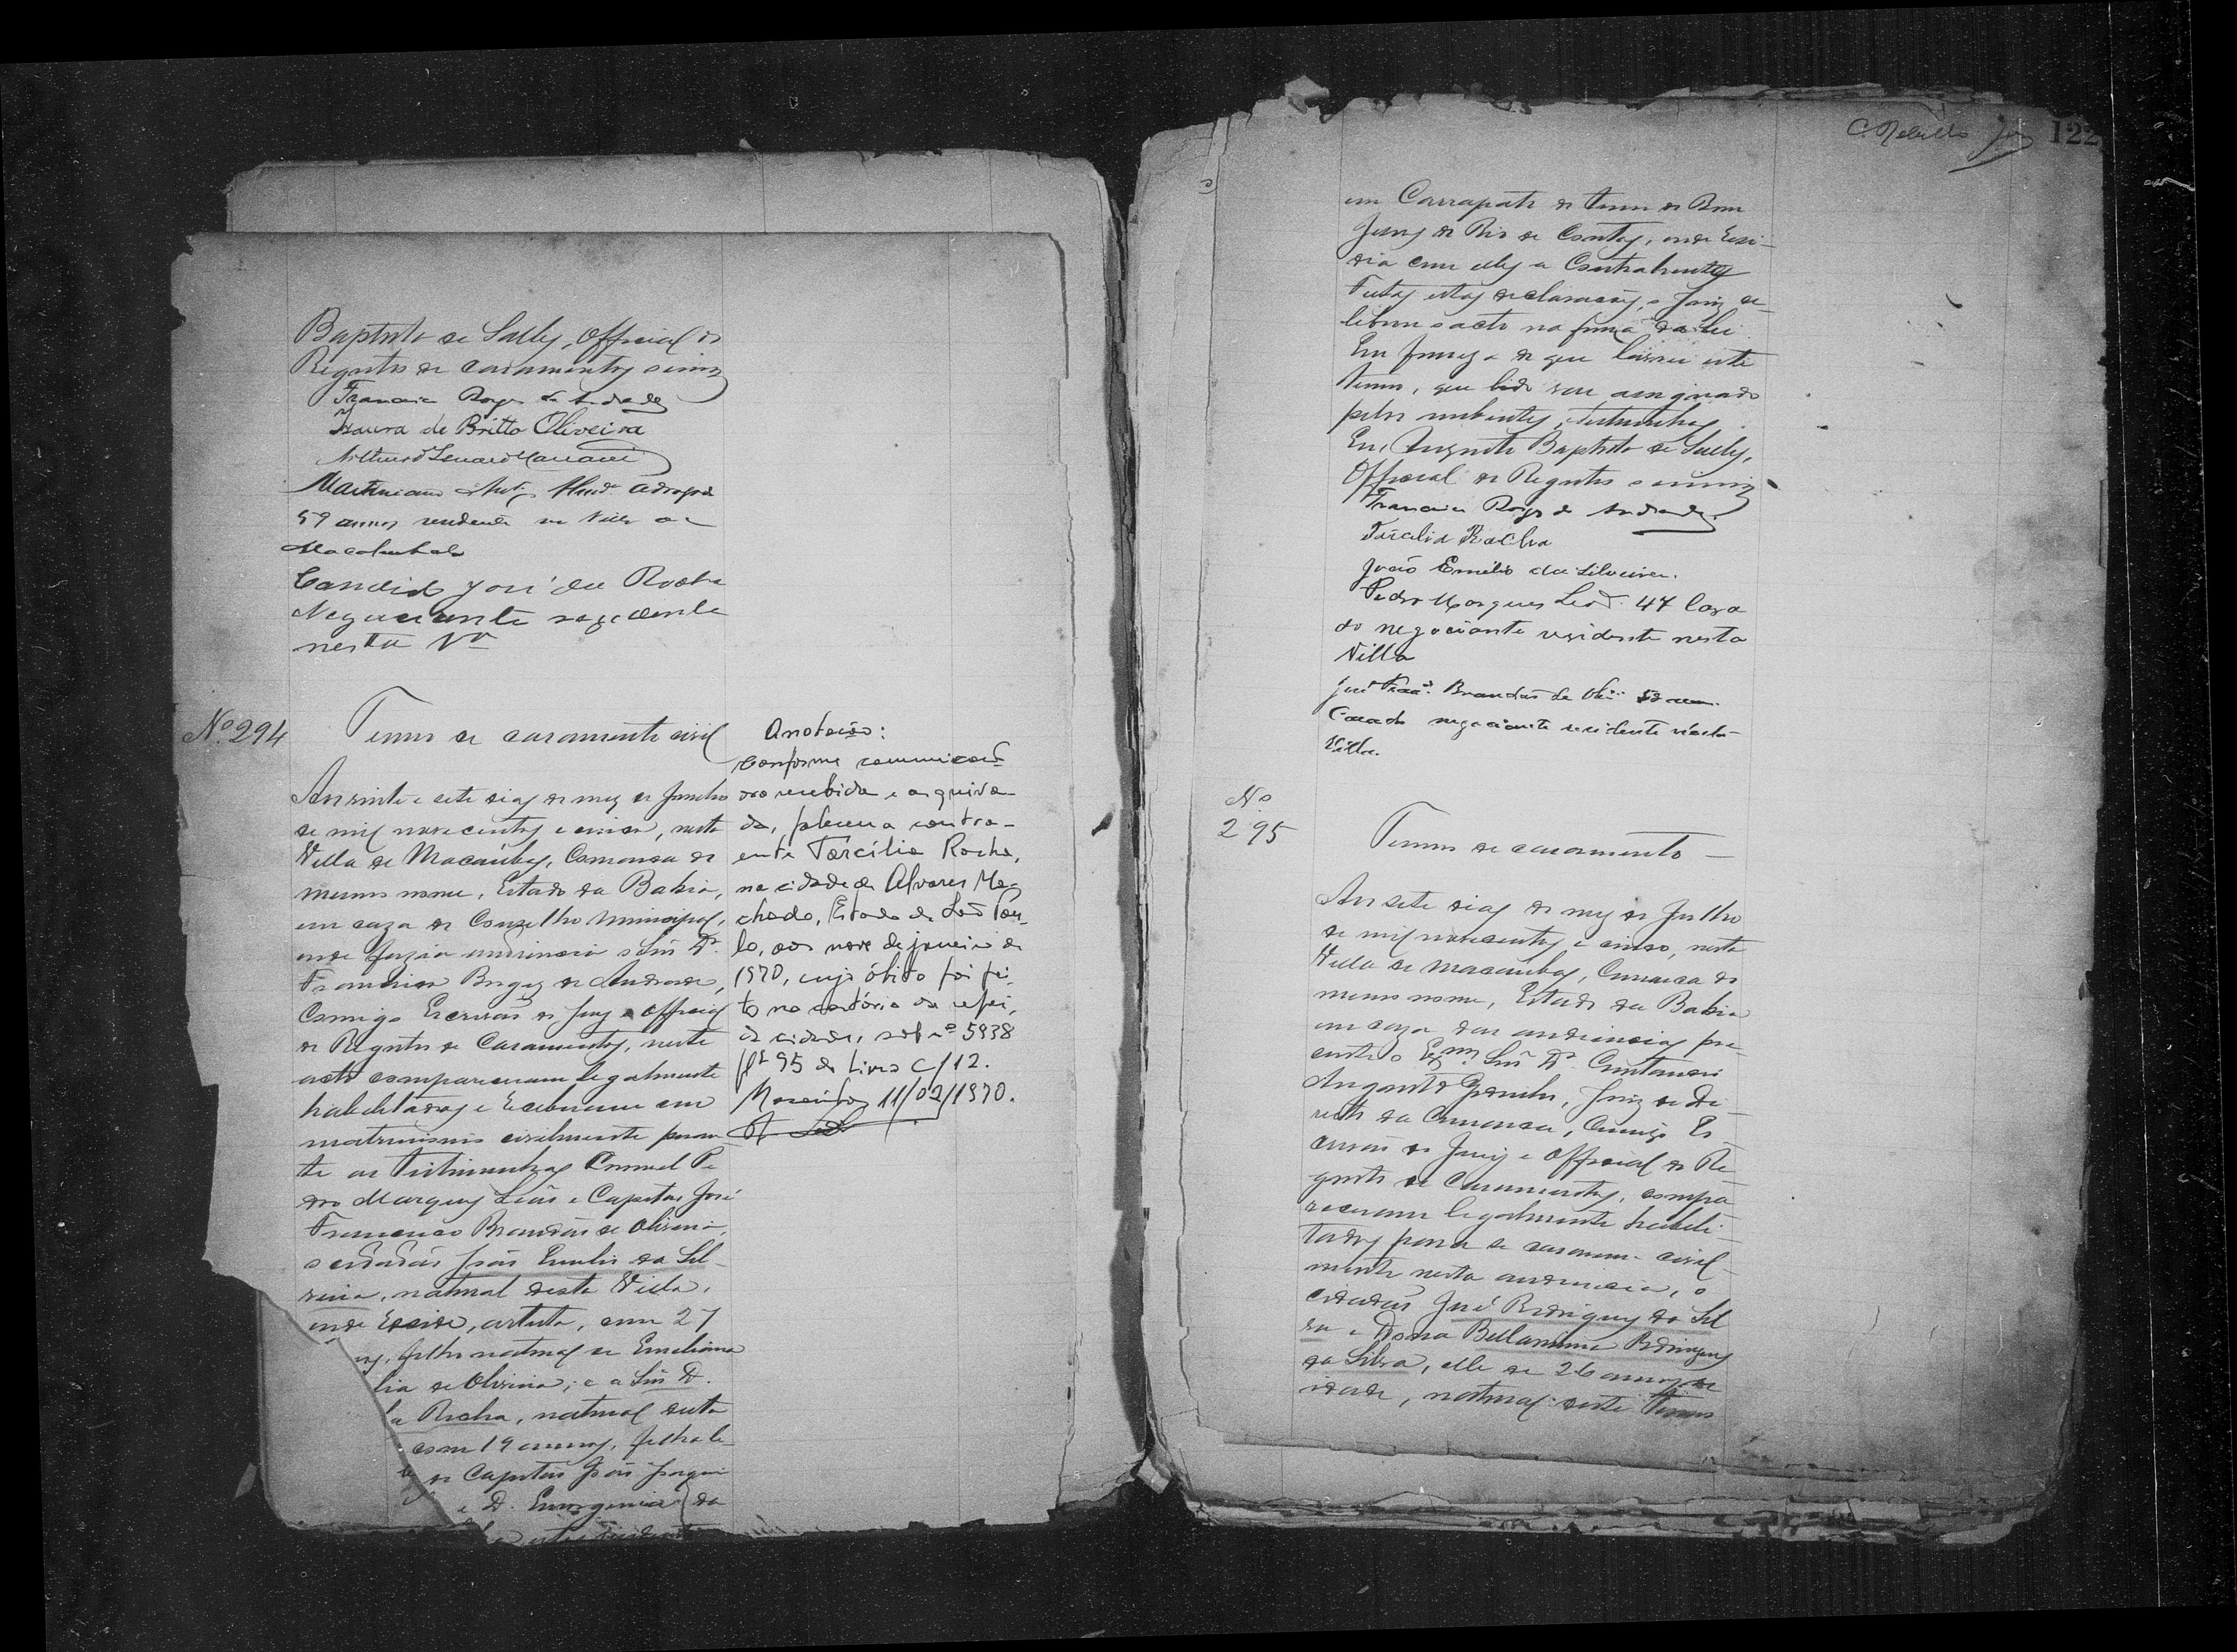 Baptista de Salles, Official do
Registro de casamentos o escrevi
Francisco Borges de Andrade
Izaura de Britto Oliveira
Arthur
Martiniano Ant.º advogado
59 annos residente na Villa de
Macahubas
Candido José da Rocha
Negociante rezidente
nesta Vª
Nº 294
Termo de casamento civil
Aos vinte e sete dias do mez de Junho
de mil novecentos e cinco, nesta
Villa de Macaúbas, Comarca do
mesmo nome, Estado da Bahia,
em caza do Conselho Municipal,
onde fazia audiencia o Snr. Dr.
Francisco Borges de Andrade,
Comigo Escrivão do Juiz e Official
do Registro de Casamentos, neste
acto compareceram legalmente
habilitados e receberam em
matrimonio civilmente peran-
te as testimunhas Coronel Pe-
dro Marques Leão e Capitão José
Francisco Brandão de Oliveira,
o cidadão João Emilio da Sil-
veira, natural desta Villa,
onde reside, artista, com 27
filho natural de Emiliana
de Oliveira; e a Snr.ª D.
Rocha, natural desta
com 19 annos, filha le-
do Capitão João Joaquim
e D. da
Anotação:
Conforme comunicaç-
ão recebida e arquiva-
da, faleceu a contra-
ente Tarcília Rocha,
na cidade de Alvares Ma-
chado, Estado de São Pau-
lo, aos nove de janeiro de
1970, cujo óbito foi fei-
to no cartório da referi-
da cidade, sob nº 5938
fls 95 do Livro C/12.
Macaúbas 11/02/1970.
C. Rebello Juiz
122
em Carrapato do termo de Bom
Jesus do Rio de Contas, onde resi-
dia com elles a Contrahente
Feitas estas declarações, o Juiz ce-
lebrou o acto na forma da Lei
Em firmeza do que lavrei este
termo, que lido vae assignado
pelos nubentes, testimunhas
Eu, Augusto Baptista de Salles,
Official do Registro o escrevi
Francisco Borges de Andrade.
Tarcilia Rocha
João Emilio da Silveira.
Pedro Marques Leão. 47 Caza
do negociante residente nesta
Villa
José Franc.º Brandão de Olivª
Casado negociante residente nesta
Villa.
Nº
295
Termo de casamento
Aos sete dias do mez de Julho
de mil novecentos e cinco, nesta
Villa de Macaúbas, Comarca do
mesmo nome, Estado da Bahia
em caza das audiencias pre-
sente o Exmº Snr. Dr.
Augusto Juiz de Di-
reito da Comarca, Comigo Es-
crivão do Juiz e Official do Re-
gistro de Casamentos, compa-
receram legalmente habili-
tados para se casarem civil-
mente nesta audiencia, o
cidadão José Rodrigues da Sil-
va e Dona Bellarmina Rodrigues
da Silva, elle de 26 annos de
idade, natural deste Termo